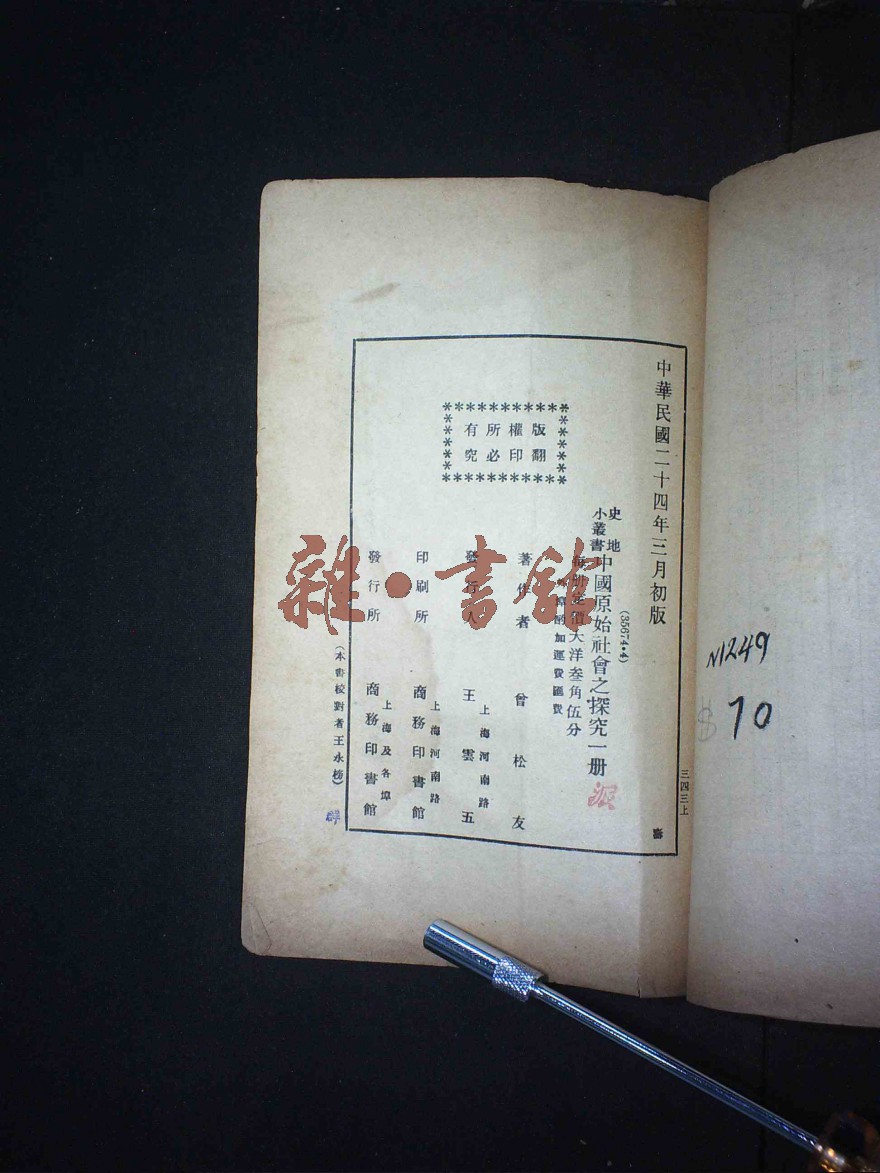 中華民國二十四年三月初版
三四三上
(35674·4)
史地
小叢書
中國原始社會之探究一册
每册定價大洋叁角伍分
外埠酌加運費匯費
版權所有
翻印必究
著作者 曾松友
發行人 王雲五
上海河南路
印刷所 商務印書館
上海河南路
發行所 商務印書館
上海及各埠
(本書校對者王永榜)
N1249
$10
雜·書館